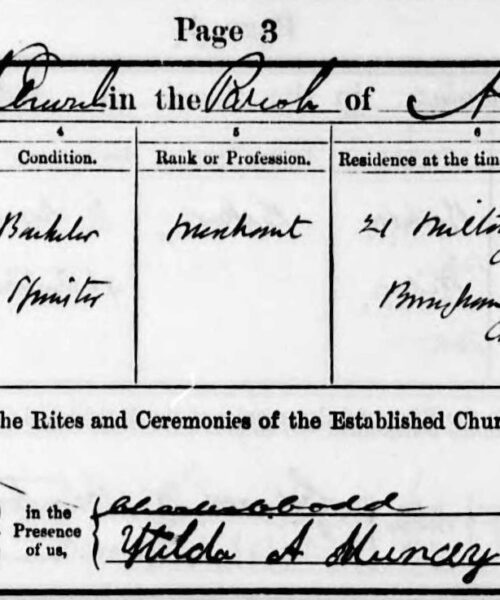 Page 3
Church in the Parish of
4 5 6
Condition. Rank or Profession. Residence at the tim
Bachelor Merchant 21
Spinster
he Rites and Ceremonies of the Established Chur
in the
Presence
of us,
Charles Dodd
Hilda A Muncey